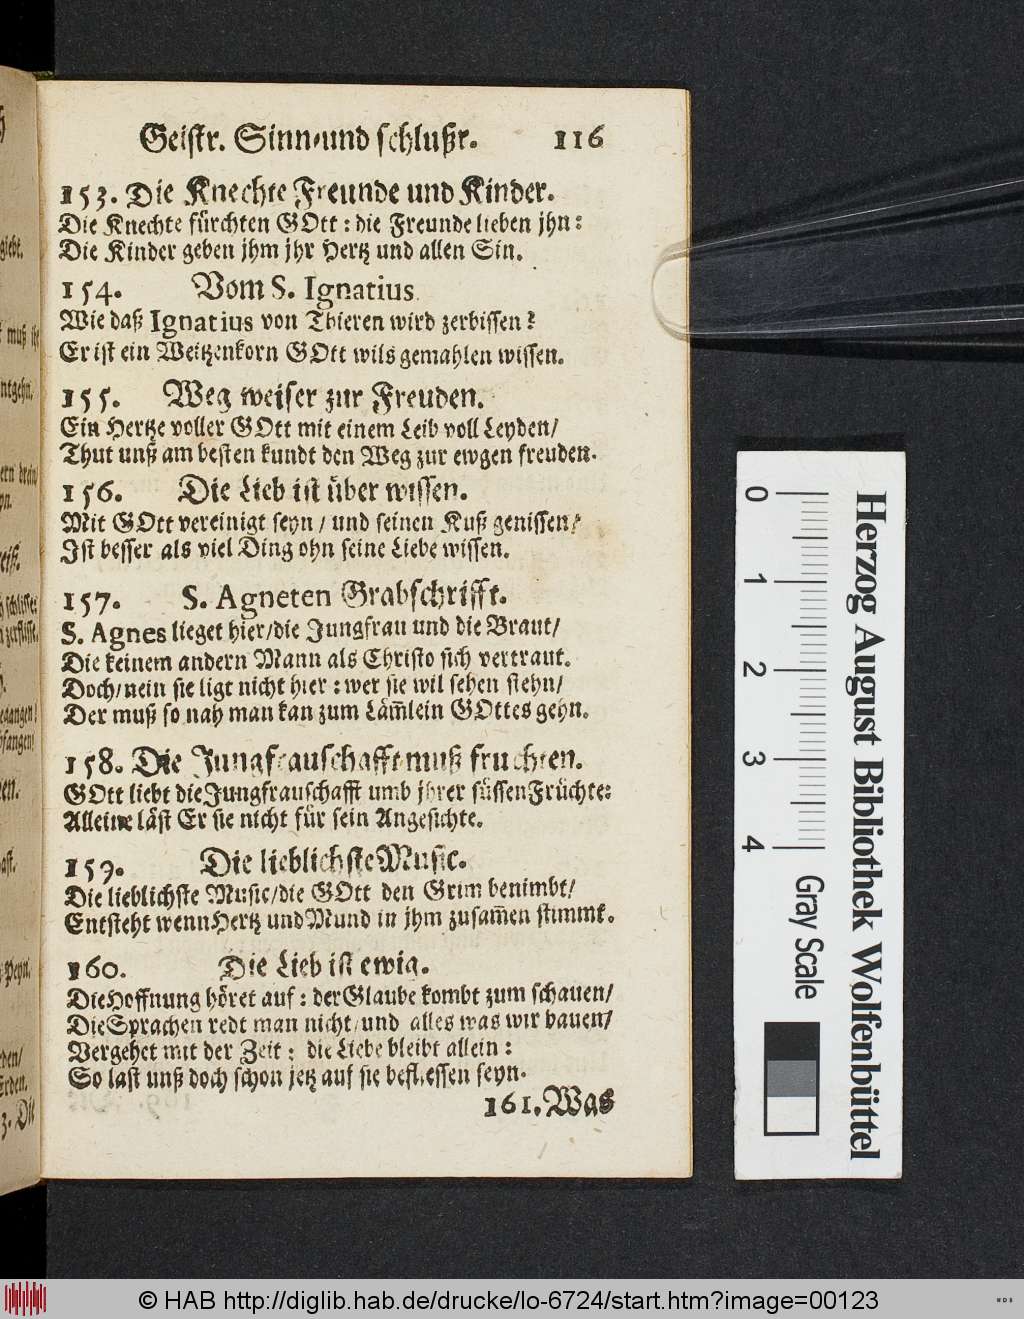 Geistr. Sinn-und schlußr. 116
153. Die Knechte Freunde und Kinder.
Die Knechte fürchten GOtt: die Freunde lieben jhn:
Die Kinder geben jhm jhr Hertz und allen Sin.
154. Vom S. Ignatius
Wie daß Ignatius von Thieren wird zerbissen?
Er ist ein Weitzenkorn GOtt wils gemahlen wissen.
155. Weg weiser zur Freuden.
Ein Hertze voller GOtt mit einem Leib voll Leyden/
Thut unß am besten kundt den Weg zur ewgen freuden.
156. Die Lieb ist über wissen.
Mit GOtt vereinigt seyn/ und seinen Kuß genissen/
Ist besser als viel Ding ohn seine Liebe wissen.
157. S. Agneten Grabschrifft.
S. Agnes lieget hier/die Jungfrau und die Braut/
Die keinem andern Mann als Christo sich vertraut.
Doch/nein sie ligt nicht hier: wer sie wil sehen stehn/
Der muß so nah man kan zum Läm̃lein GOttes gehn.
158. Die Jungfrauschafft muß fruchten.
GOtt liebt die Jungfrauschafft umb jhrer süssen Früchte:
Alleine läst Er sie nicht für sein Angesichte.
159. Die lieblichste Music.
Die lieblichste Music/die GOtt den Grim benimbt/
Entsteht wenn Hertz und Mund in jhm zusam̃en stimmt.
160. Die Lieb ist ewig.
Die Hoffnung höret auf: der Glaube kombt zum schauen/
Die Sprachen redt man nicht/und alles was wir bauen/
Vergehet mit der Zeit: die Liebe bleibt allein:
So last unß doch schon jetz auf sie beflissen seyn.
161. Was
giebt.
muß
ntgehn.
Peyn.
Erden.
3. Die
0 1 2 3 4
Gray Scale
Herzog August Bibliothek Wolfenbüttel
© HAB http://diglib.hab.de/drucke/lo-6724/start.htm?image=00123